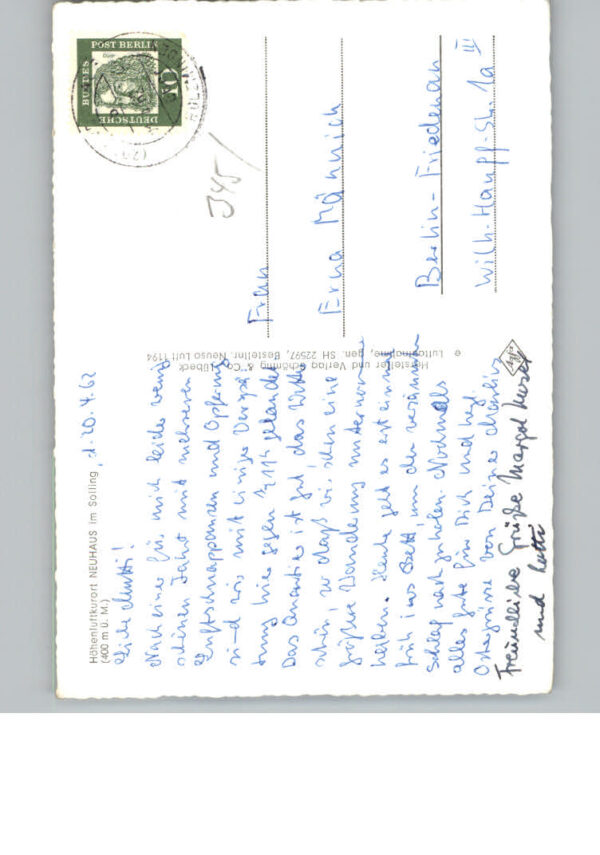 Höhenluftkurort NEUHAUS im Solling, d. 20.4.62
(400 m ü. M.)
Liebe Mutti!
Nach einer für mich leider wenig
schönen Fahrt mit mehreren
Luftschnappausen und Opferung
sind wir mit einiger Verspä
tung hier gegen 3/4 11h gelandet
Das Quartier ist gut, das Wetter
schön, so daß wir schon eine
größere Wanderung unternommen
haben. Heute geht es erst einmal
früh ins Bett, um den versäumten
Schlaf nachzuholen. Nochmals
alles Gute für Dich und herzl.
Ostergrüsse von Deiner
Freundliche Grüße Margot
und Lutti
Hersteller und Verlag Schöning & Co., Lübeck
Luftaufnahme, gen. SH 22597, Bestellnr. Neuso Luft 1194
Agfa
DEUTSCHE BUNDES POST BERLIN
10
345/
Frau
Erna Männich
Berlin-Friedenau
Wilh.-Hauff-Str. 1a III